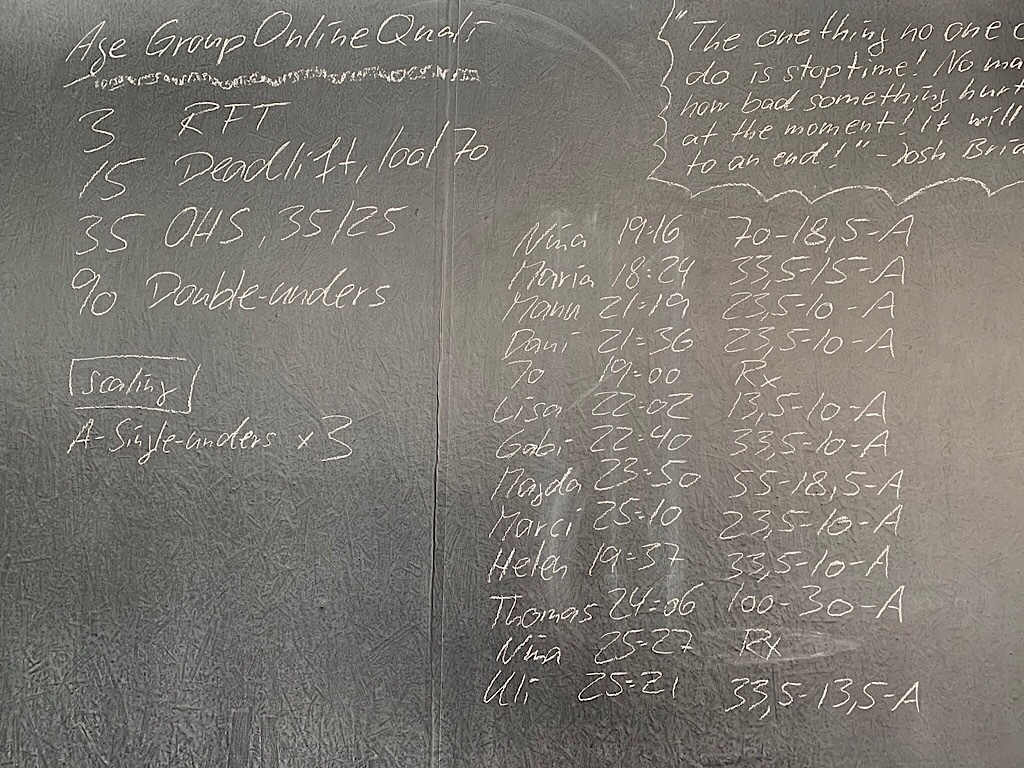 Age Group Online Quali
3 RFT
15 Deadlift, 100/70
35 OHS, 35/25
90 Double-unders
scaling
A-Single-unders x 3
"The one thing no one c
do is stop time! No ma
how bad something hurt
at the moment! It will
to an end!" - Josh Brid
Nina 19:16 70-18,5-A
Maria 18:24 33,5-15-A
Manu 21:19 23,5-10-A
Dani 21:36 23,5-10-A
Jo 19:00 Rx
Lisa 22:02 13,5-10-A
Gabi 22:40 33,5-10-A
Magda 23:50 55-18,5-A
Marci 25:10 23,5-10-A
Helen 19:37 33,5-10-A
Thomas 24:06 100-30-A
Nina 25:27 Rx
Uli 25:21 33,5-13,5-A